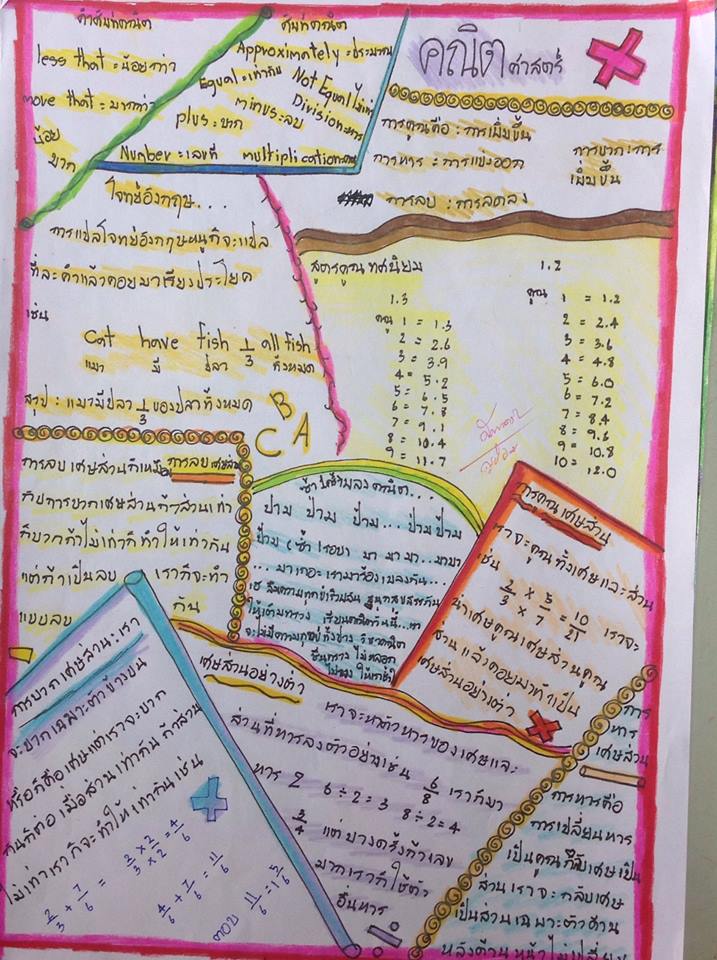 คำศัพท์คณิต
less that = น้อยกว่า
move that = มากกว่า
น้อย
มาก
ศัพท์คณิต
Approximately = ประมาณ
Equal = เท่ากับ
Not Equal ไม่เท่า
minus = ลบ
Division = หาร
plus = บวก
Number = เลขที่ multiplication = คูณ
คณิตศาสตร์
การคูณคือ : การเพิ่มขึ้น
การหาร : การแบ่งออก
การบวก : การ
เพิ่มขึ้น
การลบ : การลดลง
โจทย์อังกฤษ...
การแปลโจทย์อังกฤษหนูก็จะแปล
ทีละคำแล้วค่อยมาเรียงประโยค
เช่น
Cat have fish 1/3 all fish
แมว มี ปลา ทั้งหมด
สรุป : แมวมีปลา 1/3 ของปลาทั้งหมด
A B C
สูตรคูณทศนิยม
1.3
คูณ 1 = 1.3
2 = 2.6
3 = 3.9
4 = 5.2
5 = 6.5
6 = 7.8
7 = 9.1
8 = 10.4
9 = 11.7
1.2
คูณ 1 = 1.2
2 = 2.4
3 = 3.6
4 = 4.8
5 = 6.0
6 = 7.2
7 = 8.4
8 = 9.6
9 = 10.8
10 = 12.0
การลบเศษส่วน
การลบเศษส่วนก็เหมือน
กับการบวกเศษส่วนถ้าส่วนเท่า
ก็บวกถ้าไม่เท่าก็ทำให้เท่ากัน
แต่ถ้าเป็นลบ เราก็จะทำ
แบบลบ กัน
ป่าม ป่าม ป่าม... ป่าม ป่าม
ป่าม (ซ้ำ 1 รอบ) มา มา มา...มามา
...มาเถอะเรามาร้องเพลงกัน...
การคูณเศษส่วน
เราจะคูณทั้งเศษและส่วน
เช่น 2/3 × 5/7 = 10/21 เราจะ
นำเศษคูณเศษส่วนคูณ
ส่วน แล้วค่อยมาทำเป็น
เศษส่วนอย่างต่ำ
การบวกเศษส่วน : เรา
จะบวกเฉพาะตัวข้างบน
หรือก็คือเศษแต่เราจะบวก
กันก็ต่อเมื่อส่วนเท่ากัน ถ้าส่วน
ไม่เท่าเราก็จะทำให้เท่ากันเช่น
2/3 + 7/6 = 2/3 × 2/2 = 4/6
4/6 + 7/6 = 11/6
ตอบ 11/6 = 1 5/6
เศษส่วนอย่างต่ำ
เราจะหาตัวหารของเศษและ
ส่วนที่หารลงตัวอย่างเช่น 6/8 เราก็มา
หาร 2 6÷2=3 8÷2=4
3/4 แต่บางครั้งถ้าเลข
มากเราก็ใช้ตัว
อื่นหาร
การ
หาร
เศษส่วน
การหารคือ
การเปลี่ยนหาร
เป็นคูณกลับเศษเป็น
ส่วนเราจะกลับเศษ
เป็นส่วนเฉพาะตัวด้าน
หลังด้านหน้าไม่เปลี่ยน